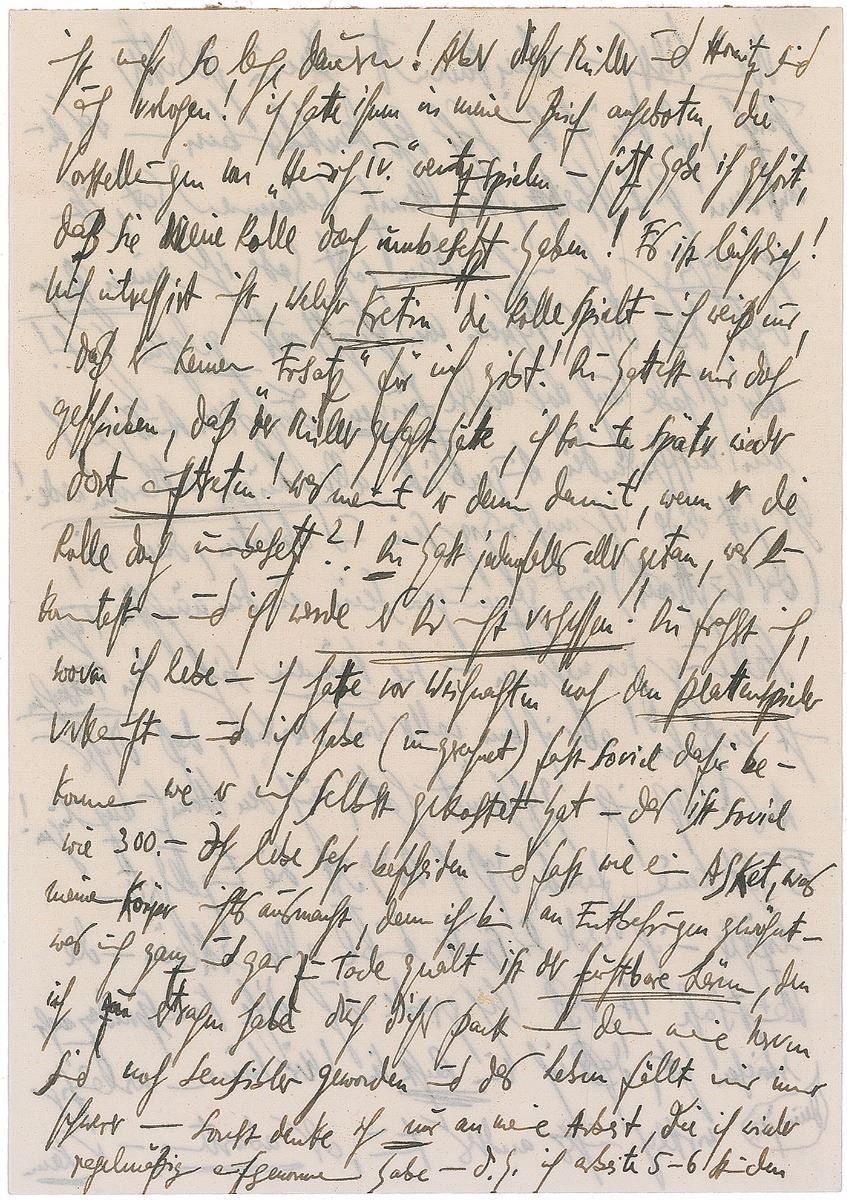 nicht mehr so lange dauern! Aber dieser Müller und Horwitz sind
auch verlogen! ich hatte ihnen in meinem Brief angeboten, die
Vorstellungen von „Heinrich IV.“ weiterzuspielen – jetzt habe ich gehört,
daß Sie Meine Rolle doch umbesetzt haben! Es ist lächerlich!
Mich interessiert nicht, welcher Kretin die Rolle spielt – ich weiß nur,
daß es keinen „Ersatz“ für mich gibt! Du hattest mir doch
geschrieben, daß der Müller gesagt hätte, ich könnte später wieder
dort auftreten! was meint er denn damit, wenn er die
Rolle doch umbesetzt?! Du hast jedenfalls alles getan, was Du
konntest – und ich werde es Dir nicht vergessen! Du fragst mich,
wovon ich lebe – ich habe vor Weihnachten noch den Plattenspieler
verkauft – und ich habe (umgerechnet) fast soviel dafür be-
kommen wie er mich selbst gekostet hat – das ist soviel
wie 300.– Ich lebe sehr bescheiden und fast wie ein Asket, was
meinem Körper nichts ausmacht, denn ich bin an Entbehrungen gewöhnt –
was mich ganz und gar zu Tode quält ist der furchtbare Lärm, den
ich zu ertragen habe durch dieses Pack – denn meine Nerven
sind noch sensibler geworden und das Leben fällt mir immer
schwerer – sonst denke ich nur an meine Arbeit, die ich wieder
regelmäßig aufgenommen habe – d.h. ich arbeite 5-6 Stunden